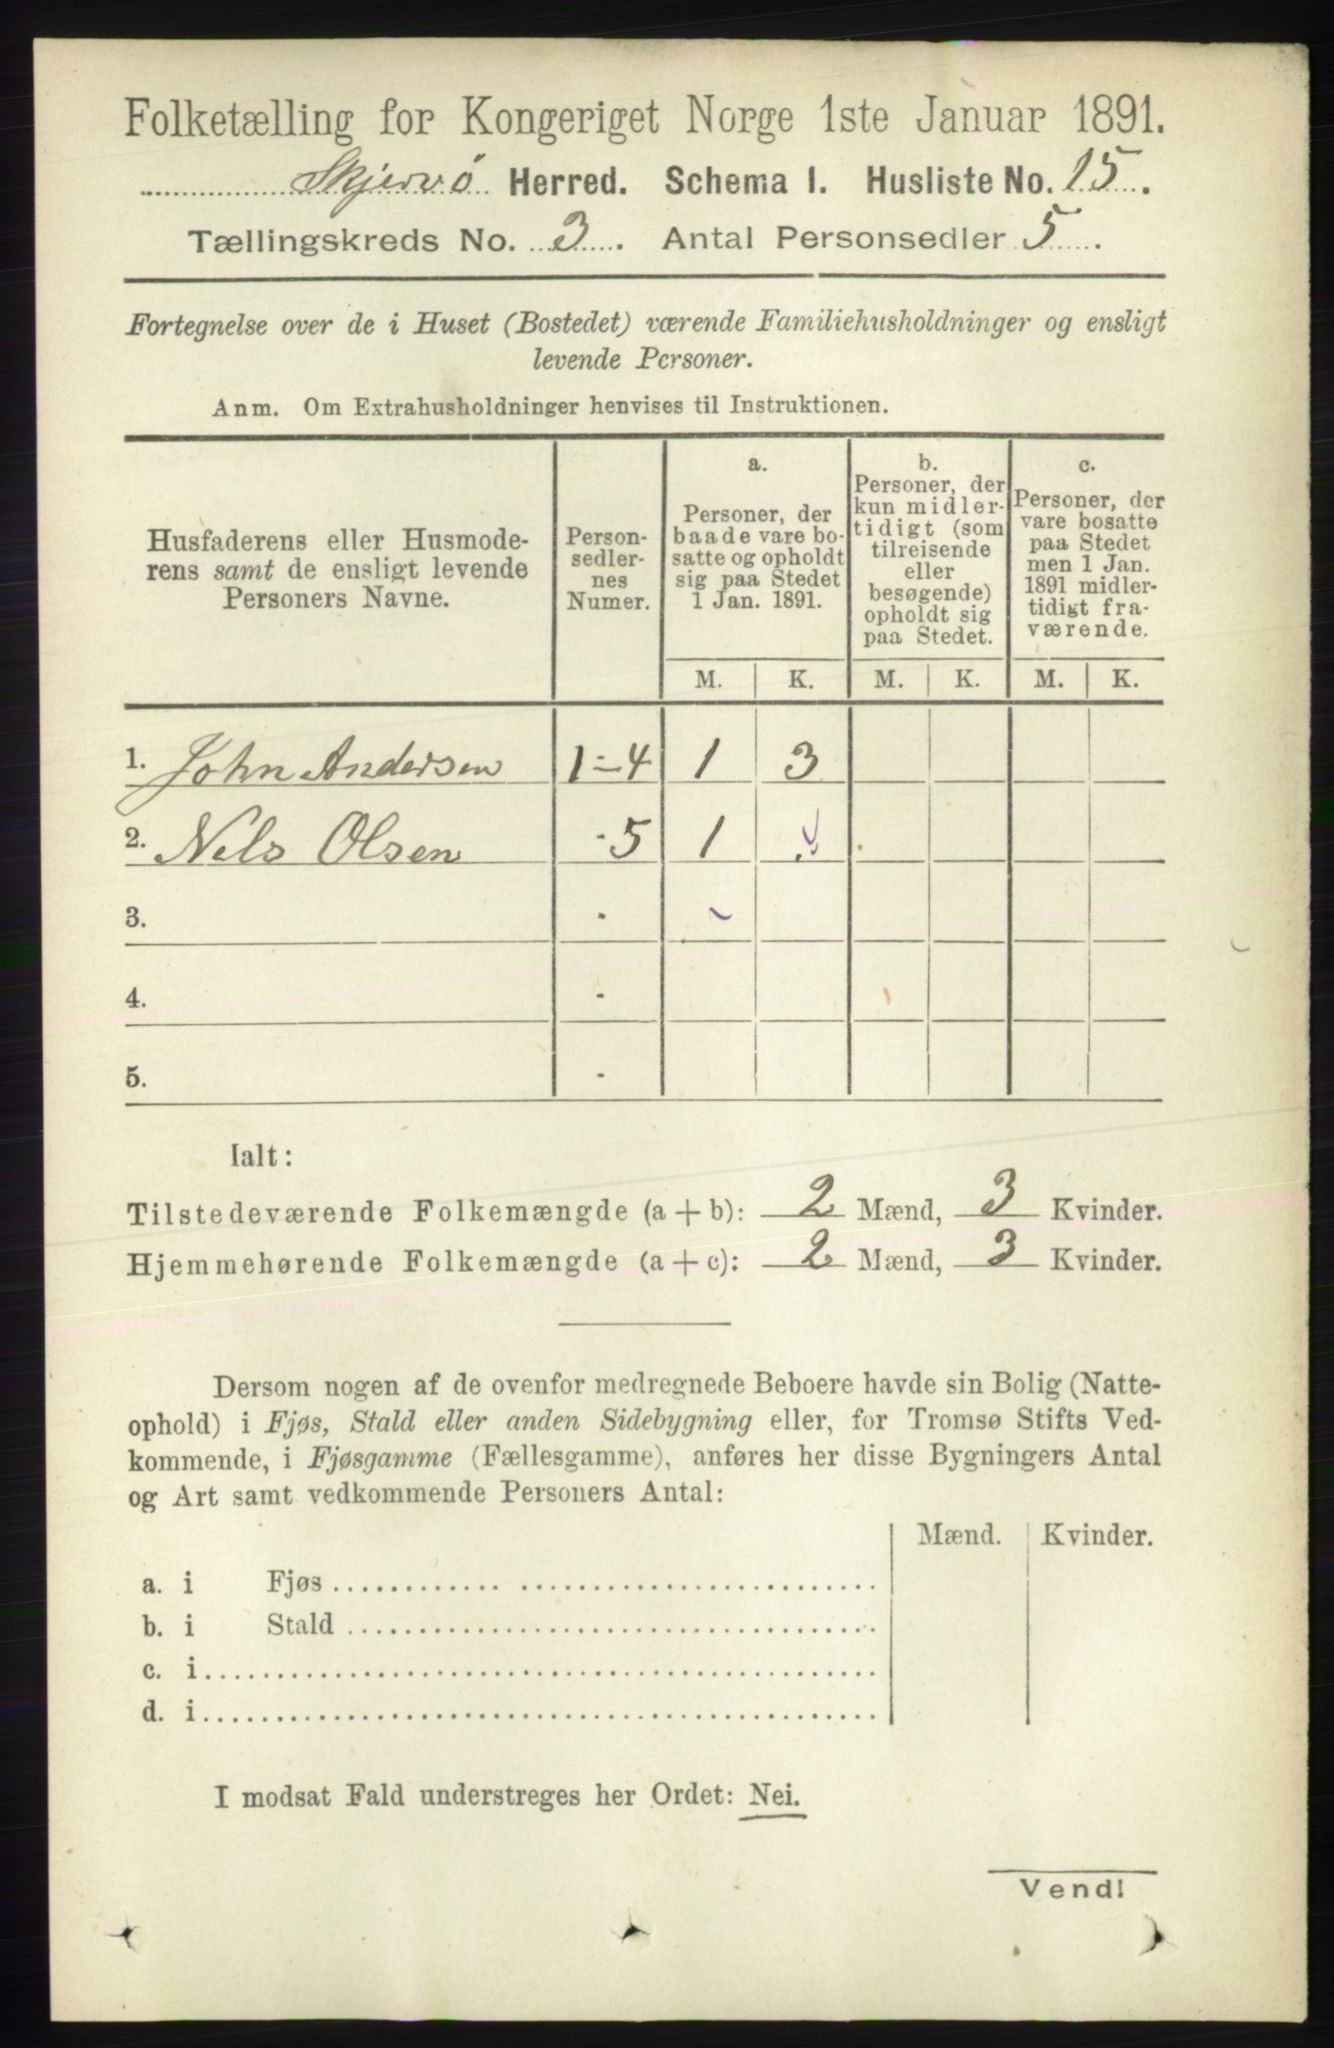 Folketælling for Kongeriget Norge 1ste Januar 1891.
Skjervö Herred. Schema I. Husliste No. 15.
Tællingskreds No. 3. Antal Personsedler 5.
Fortegnelse over de i Huset (Bostedet) værende Familiehusholdninger og ensligt
levende Personer.
Anm. Om Extrahusholdninger henvises til Instruktionen.
Husfaderens eller Husmode-
rens samt de ensligt levende
Personers Navne.
Person-
sedler-
nes
Numer.
a.
Personer, der
baade vare bo-
satte og opholdt
sig paa Stedet
1 Jan. 1891.
b.
Personer, der
kun midler-
tidigt (som
tilreisende
eller
besøgende)
opholdt sig
paa Stedet.
c.
Personer, der
vare bosatte
paa Stedet
men 1 Jan.
1891 midler-
tidigt fra-
værende.
M. K. M. K. M. K.
1. John Andersen 1-4 1 3
2. Nels Olsen -5 1
3. -
4. -
5. -
Ialt:
Tilstedeværende Folkemængde (a + b): 2 Mænd, 3 Kvinder.
Hjemmehørende Folkemængde (a + c): 2 Mænd, 3 Kvinder.
Dersom nogen af de ovenfor medregnede Beboere havde sin Bolig (Natte-
ophold) i Fjøs, Stald eller anden Sidebygning eller, for Tromsø Stifts Ved-
kommende, i Fjøsgamme (Fællesgamme), anføres her disse Bygningers Antal
og Art samt vedkommende Personers Antal:
Mænd. Kvinder.
a. i Fjøs
b. i Stald
c. i
d. i
I modsat Fald understreges her Ordet: Nei.
Vend!